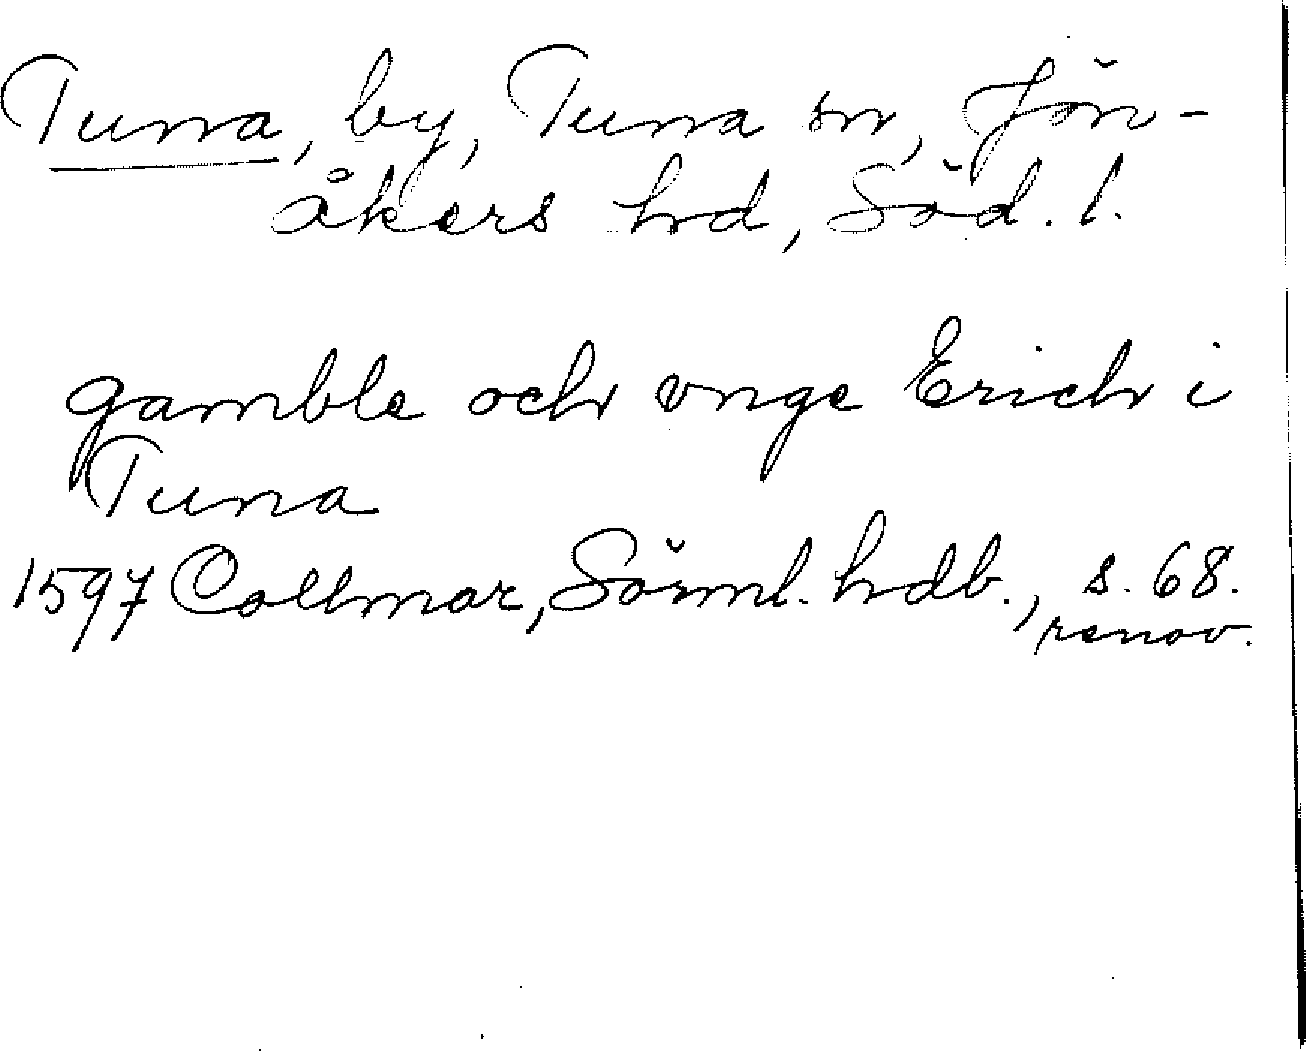 Tuna, by, Tuna sn, Jön-
åkers hrd, Söd. l.
gamble och vnge Erich i
Tuna
1597 Collmar, Sörml. hdb., s. 68.
renov.